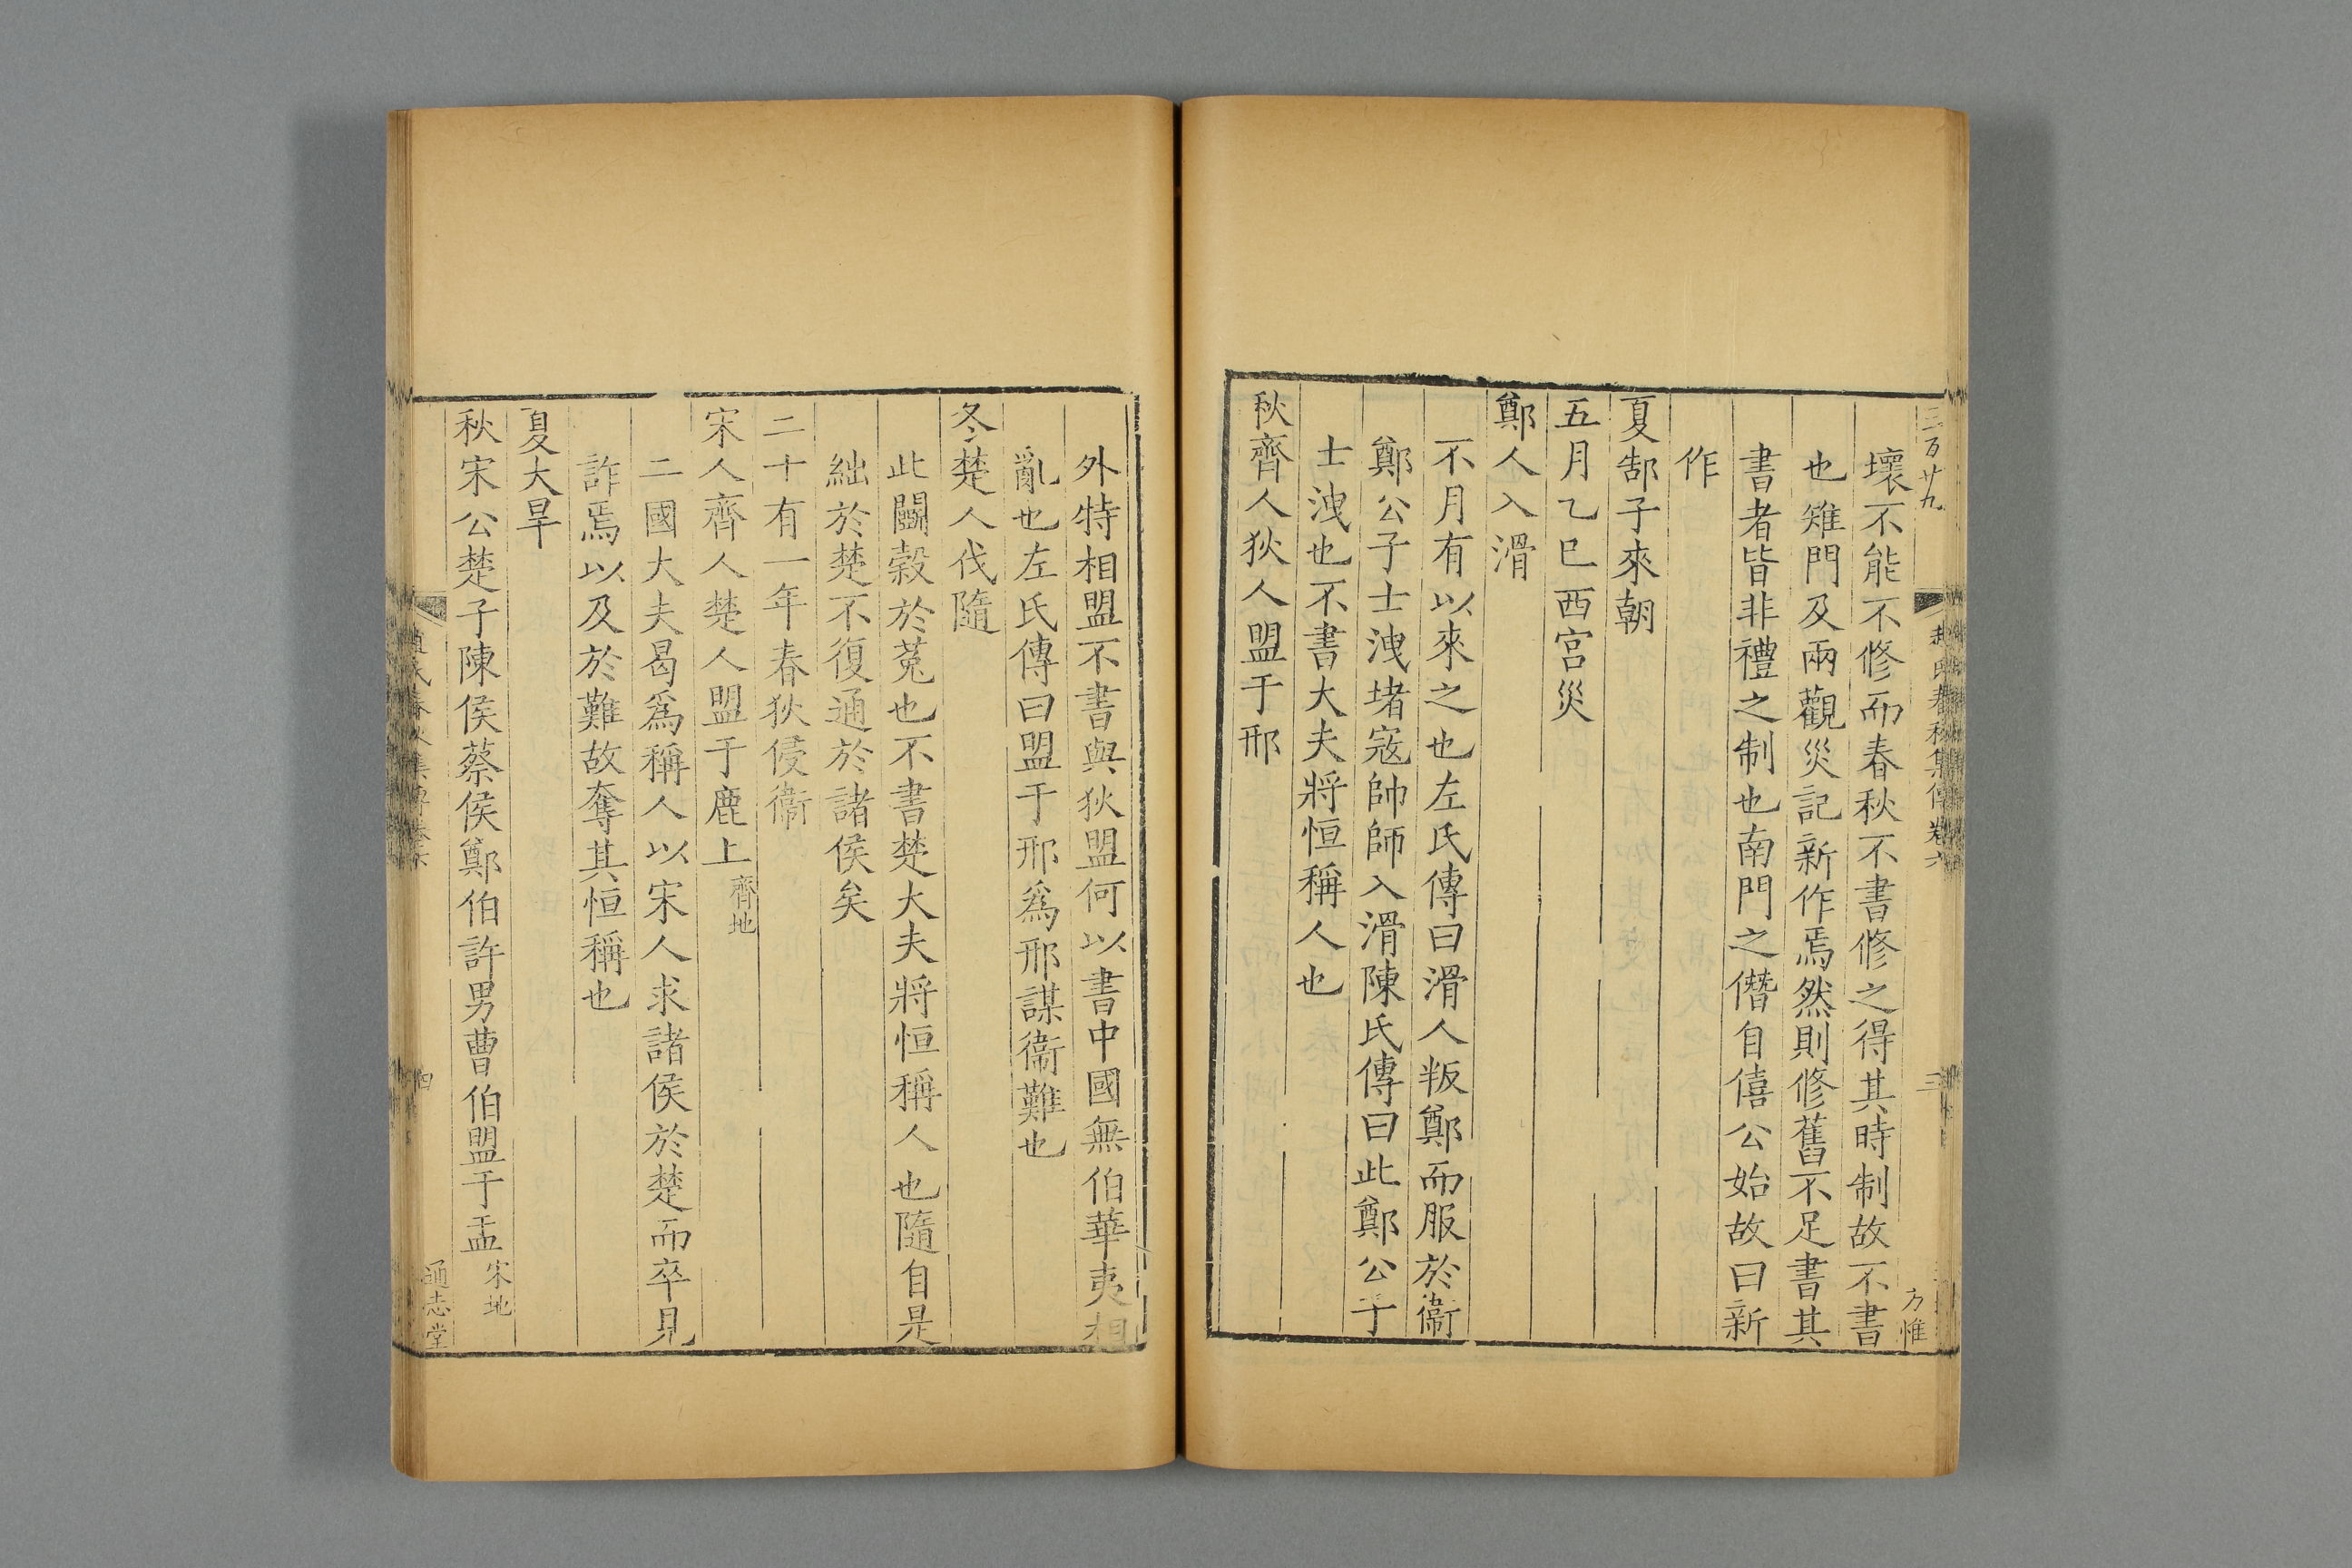 三百廿九
趙氏春秋集傳卷六
三
方惟
壞不能不修而春秋不書修之得其時制故不書
也雉門及兩觀災記新作焉然則修舊不足書其
書者皆非禮之制也南門之僭自僖公始故曰新
作
夏郜子來朝
五月乙巳西宮災
鄭人入滑
不月有以來之也左氏傳曰滑人叛鄭而服於衞
鄭公子士洩堵寇帥師入滑陳氏傳曰此鄭公子
士洩也不書大夫將恒稱人也
秋齊人狄人盟于邢
外特相盟不書與狄盟何以書中國無伯華夷相
亂也左氏傳曰盟于邢爲邢謀衞難也
冬楚人伐隨
此鬭穀於菟也不書楚大夫將恒稱人也隨自是
絀於楚不復通於諸侯矣
二十有一年春狄侵衞
宋人齊人楚人盟于鹿上齊地
二國大夫曷爲稱人以宋人求諸侯於楚而卒見
詐焉以及於難故奪其恒稱也
夏大旱
秋宋公楚子陳侯蔡侯鄭伯許男曹伯盟于盂宋地
趙氏春秋集傳卷六
四
通志堂